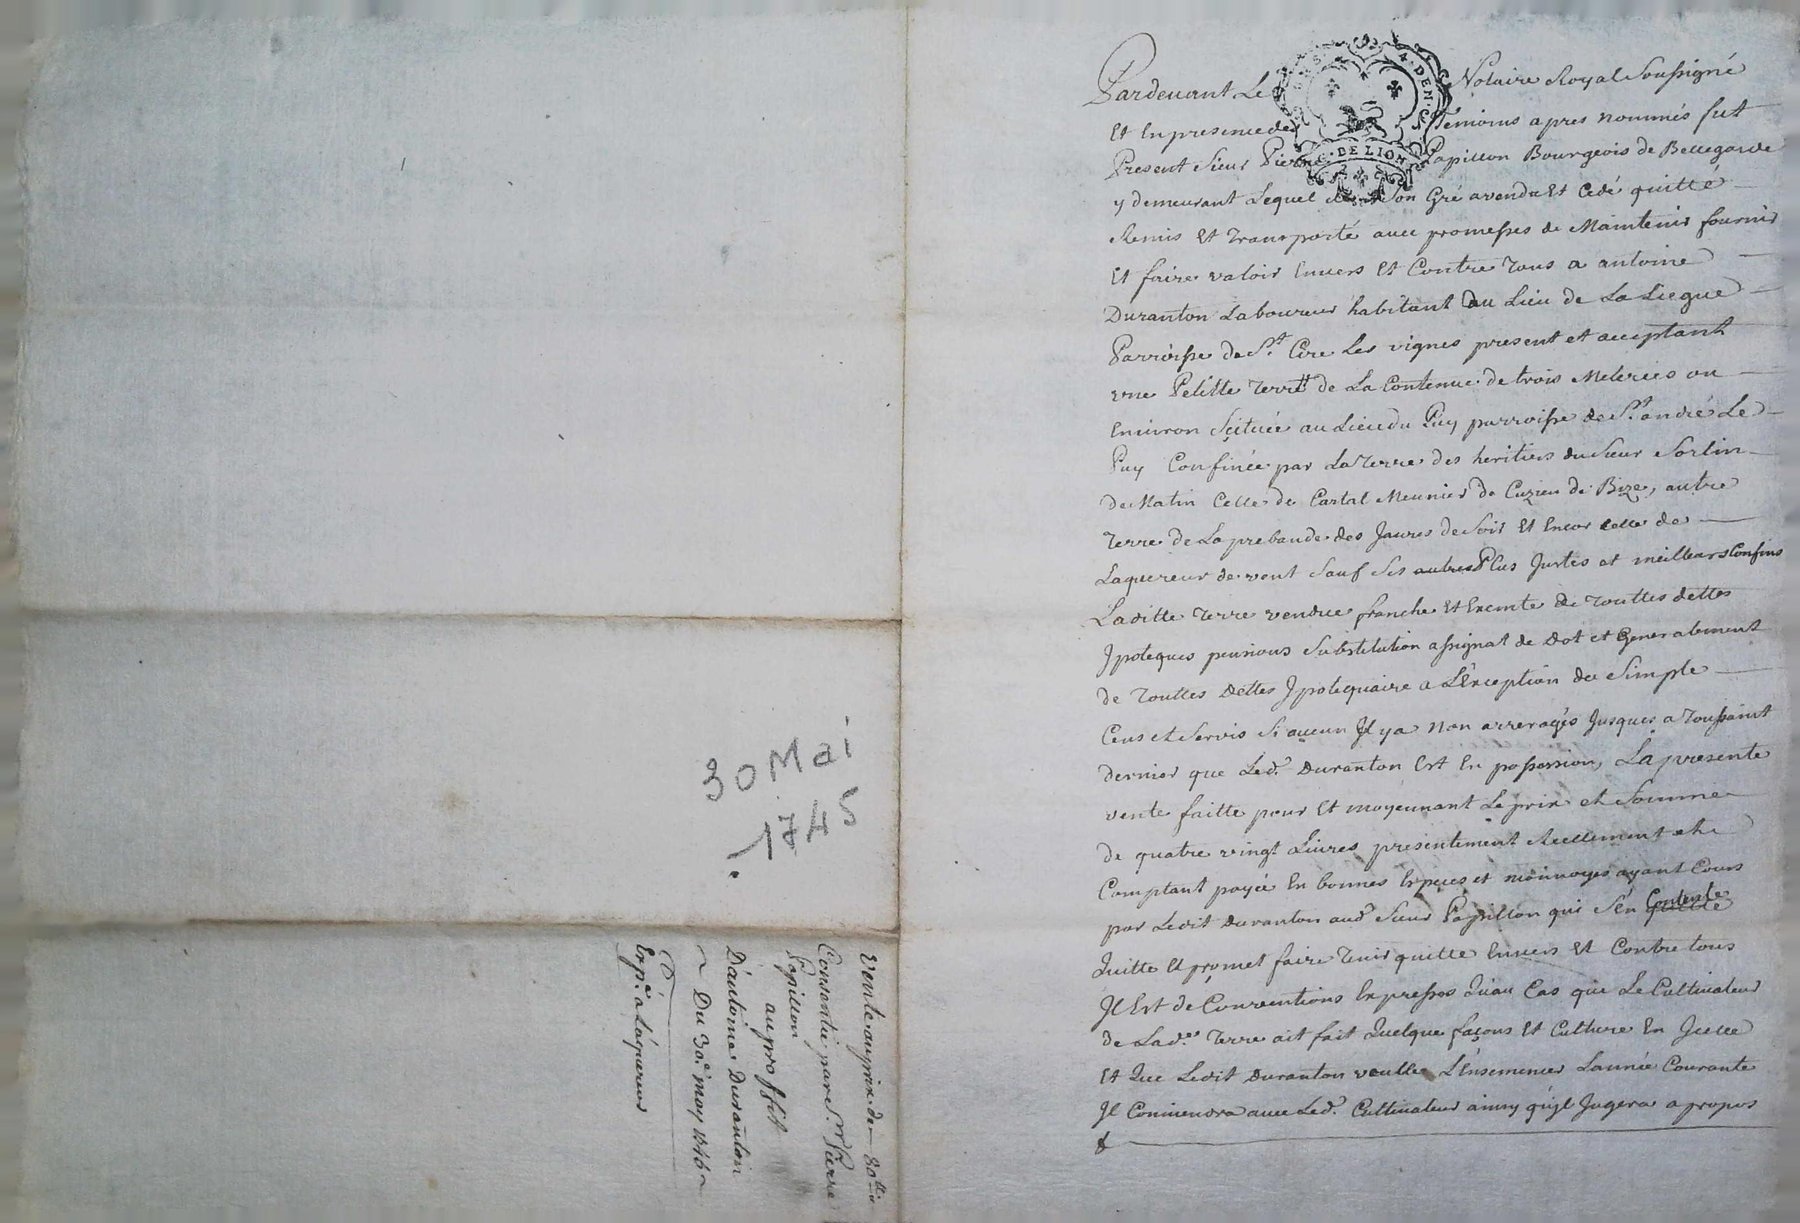 30 Mai
1745
Vente au prix de 80 #
Consentie par Sr. Pierre
Papillon
au proffit
D'antoine Duranton
Du 30e. may 1745
Expe. a Laquereur
DE LION
Pardevant Le Notaire Royal Soussigné
Et En presence des Temoins apres nommés fut
Present Sieur Pierre Papillon Bourgeois de Bellegarde
y demeurant Lequel de son Gré a vendu Et Cedé quitté
Remis Et Transporté avec promesses de Maintenir fournir
Et faire valoir Envers Et Contre Tous a antoine
Duranton Laboureur habitant du Lieu de La Liegue
Parroisse de St. Cire Les vignes present et acceptant
une Petitte Terre de La Contenue de trois Meterées ou
Environ Scituée au Lieu du Puy parroisse de St. andré Le
Puy Confinée par La Terre des heritiers du Sieur Sorlin
de Matin Celle de Cartal Meunier de Cuzieu de Bize, autre
Terre de La prebande des Jaures de Soir Et Encor celle de
Laquereur de vent Sauf Ses autres Plus Justes et meilleurs Confins
Laditte Terre vendue franche Et Exemte de Touttes dettes
Ipoteques pensions Substitution assignat de Dot et Generalement
de Touttes Dettes Ipotequaire a L'Exception du Simple
Cens et Servis Si aucun Il y a Non arreragés Jusques a Toussaint
dernier que Led. Duranton Est En possession, La presente
vente faitte pour Et moyennant Le prix et Somme
de quatre vingt Livres presentement Reellement et
Comptant payée En bonnes Especes et monnoyes ayant Cours
par Ledit Duranton aud. Sieur Papillon qui s'en Contente
Quitte Et promet faire Tenir quitte Envers Et Contre tous
Il Est de Conventions Expresses Qu'au Cas que Le Cultivateur
de Lade. Terre ait fait Quelque façons Et Culture En Jcelle
Et Que Ledit Duranton veulle L'Ensemencer L'année Courante
Il Conviendra avec Led. Cultivateur ainsy qu'il Jugera a propos
&